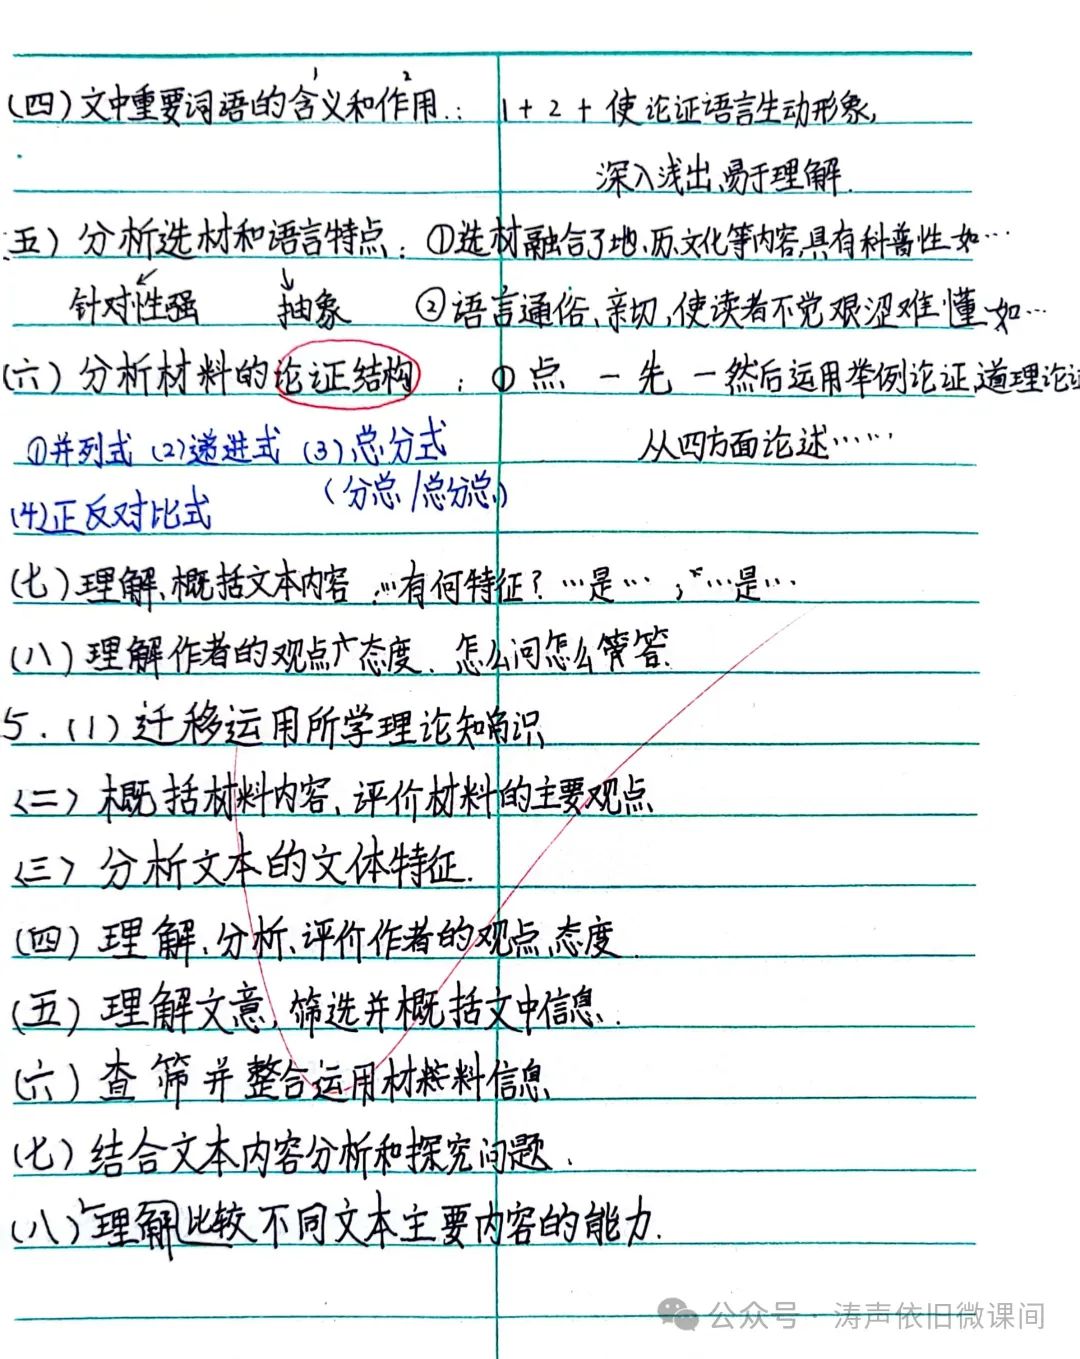 (四)文中重要词语的含义和作用.: 1+2+使论证语言生动形象,
1 2
深入浅出、易于理解.
五)分析选材和语言特点: ①选材融合了地、历、文化等内容,具有科普性如…
针对性强 抽象 ②语言通俗、亲切,使读者不觉艰涩难懂 如…
(六)分析材料的论证结构: ①点 — 先 — 然后运用举例论证、道理论证
①并列式 (2)递进式 (3)总分式 从四方面论述……
(分总/总分总)
(4)正反对比式
(七)理解、概括文本内容 :…有何特征?…是…;"…是…
(八)理解作者的观点、态度. 怎么问怎么答.
5.(1)迁移运用所学理论知识
(二)概括材料内容、评价材料的主要观点
(三)分析文本的文体特征.
(四)理解、分析、评价作者的观点、态度.
(五)理解文意,筛选并概括文中信息.
(六)查筛并整合运用材料信息
(七)结合文本内容分析和探究问题.
(八)理解比较不同文本主要内容的能力.
公众号·涛声依旧微课间